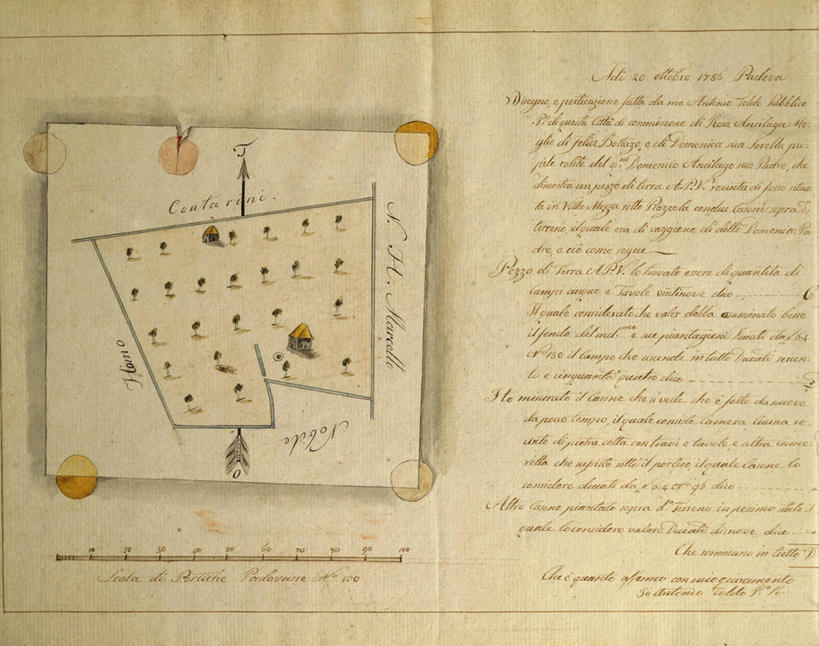 T
Contarini.
N. H. Marcello
Homo
Nobile
O
10 20 30 40 50 60 70 80 90 100
Scala di Pertiche Padovane Nº 100
Adi 20 ottobre 1786 Padova
Disegno, e perticazione fatta da me Antonio Pubblico
Pº di questa Città di commissione di Rosa Ansilago Mo:
glie di felice Bottazo, e di Domenica sua Sorella pu:
pile relite del qm Domenico Ancilago suo Padre, che
dimostra un pezzo di terra A.P.V. recinta di fosso situa:
ta in Villa sotto Piazzola con due Casoni sopra dº
terreno il quale era di raggione di detto Domenico Pa:
dre, e ciò come segue
Pezzo di Terra A.P.V. lo trovate essere di quantità di
campi cinque, e Tavole vintinove dico
Il quale considerato che valer debba esaminato bene
il fondo del medme e sue piantagioni
Nº 130 il campo che ascende in tutto Ducati seicen:
to e cinquanta quatro dico
Ho misurato il Casone che si vede che è fatto da nuovo
da poco tempo, il quale consiste camera, Cusina re:
cinte di pietra cotta con travi e tavole, e altra came:
rella che sotto il portico, il quale Casone lo
considero ducati da £ 6:4 Nº 96 dico
Altro Casone piantato sopra dº Terreno in pessimo stato il
quale lo considero valore Ducati dinove, dico
Che sommano in tutto D
Che è quanto affermo con mio giuramento
Io Antonio Pº Pº